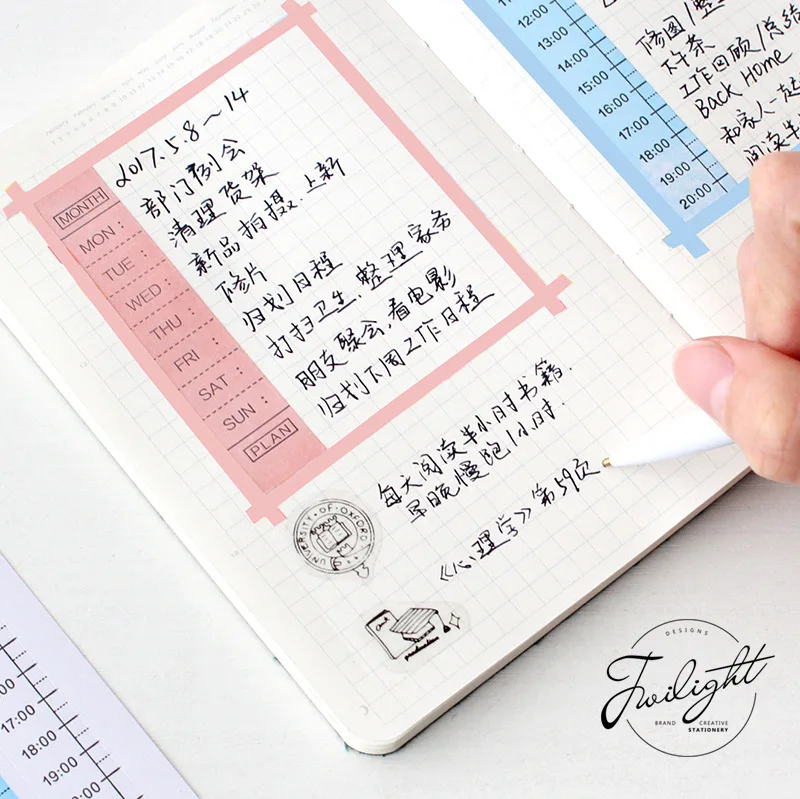 MONTH
2017.5.8～14
MON:
部门例会
TUE:
清理货架
WED
新品拍摄.上新
THU:
修片
FRI:
归划日程
SAT:
打扫卫生.整理家务
SUN:
朋友聚会,看电影
PLAN
归划下周工作日程
每天阅读半小时书籍.
早晚慢跑1小时.
《心理学》第59页
UNIVERSITY OF OXFORD
graduation
12:00
13:00
14:00
15:00
16:00
17:00
18:00
19:00
20:00
修图/整
下午茶
工作回顾/总结
Back Home
和家人一起
阅读半
17:00
18:00
19:00
DESIGNS
Twilight
BRAND CREATIVE
STATIONERY